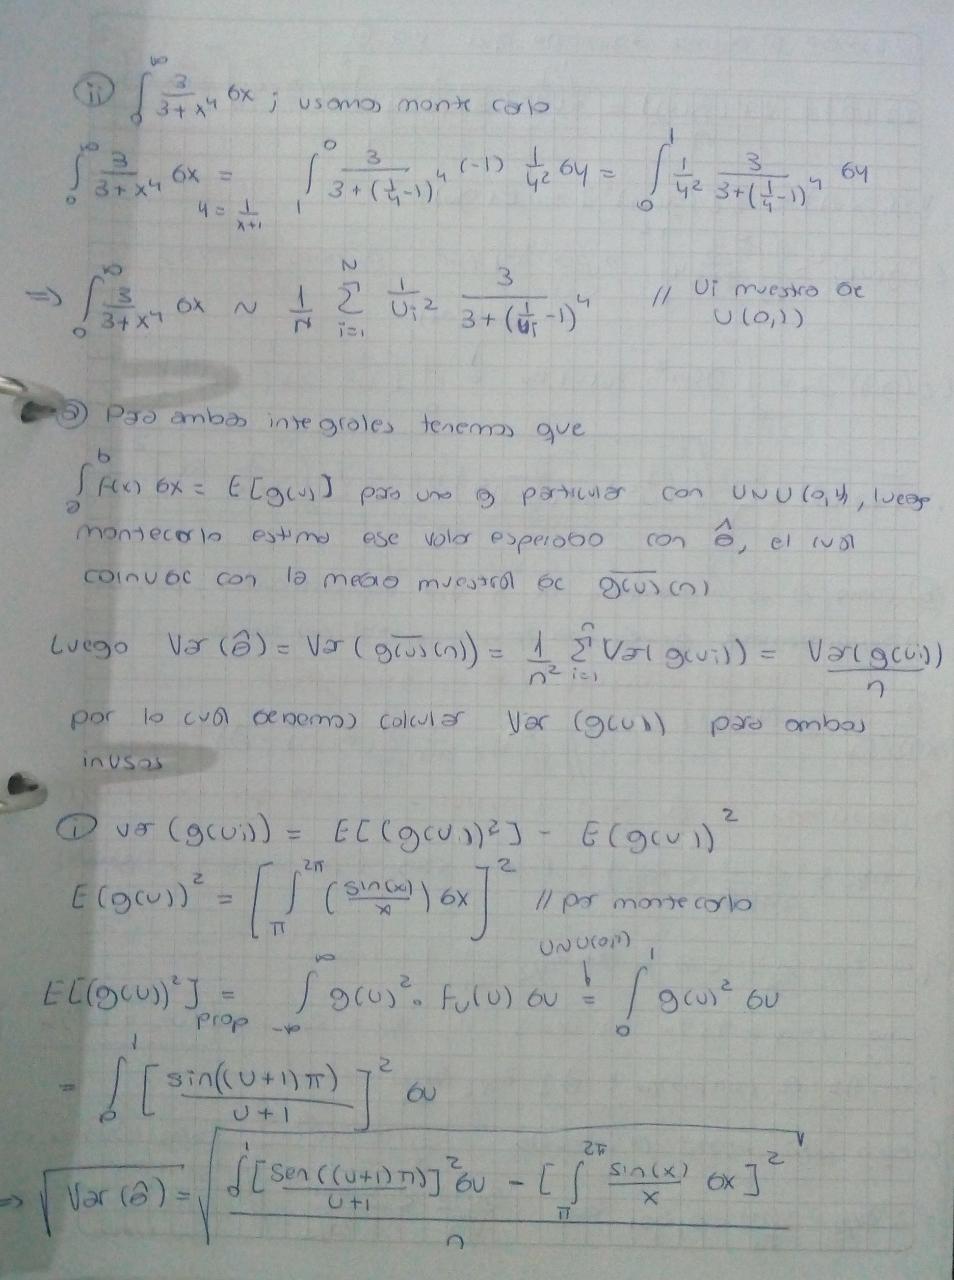 ii) ∫_0^∞ 3/(3+x^4) dx ; usamos monte carlo
∫_0^∞ 3/(3+x^4) dx = ∫_1^0 3/(3+(1/y-1)^4) (-1) 1/y^2 dy = ∫_0^1 1/y^2 3/(3+(1/y-1)^4) dy
y = 1/(x+1)
⇒ ∫_0^∞ 3/(3+x^4) dx ~ 1/N Σ_{i=1}^N 1/Ui^2 3/(3+(1/Ui-1)^4) // Ui muestra de
U(0,1)
a) Para ambas integrales tenemos que
∫_a^b f(x) dx = E[g(u)] para una g particular con U~U(0,1), luego
montecarlo estima ese valor esperado con θ̂, el cual
coincide con la media muestral de \overline{g(u)}(n)
Luego Var(θ̂) = Var(\overline{g(u)}(n)) = 1/n^2 Σ_{i=1}^n Var(g(ui)) = Var(g(ui))/n
por lo cual debemos calcular Var(g(ui)) para ambos
incisos
i) var(g(ui)) = E[(g(ui))^2] - E(g(ui))^2
E(g(u))^2 = [∫_π^{2π} (sin(x)/x) dx]^2 // por montecarlo
U~U(0,1)
E[(g(u))^2] = ∫_{-∞}^∞ g(u)^2 · fu(u) du = ∫_0^1 g(u)^2 du
prop
= ∫_0^1 [sin((u+1)π)/(u+1)]^2 du
⇒ √Var(θ̂) = √((∫_0^1 [sen((u+1)π)/(u+1)]^2 du - [∫_π^{2π} sin(x)/x dx]^2)/n)